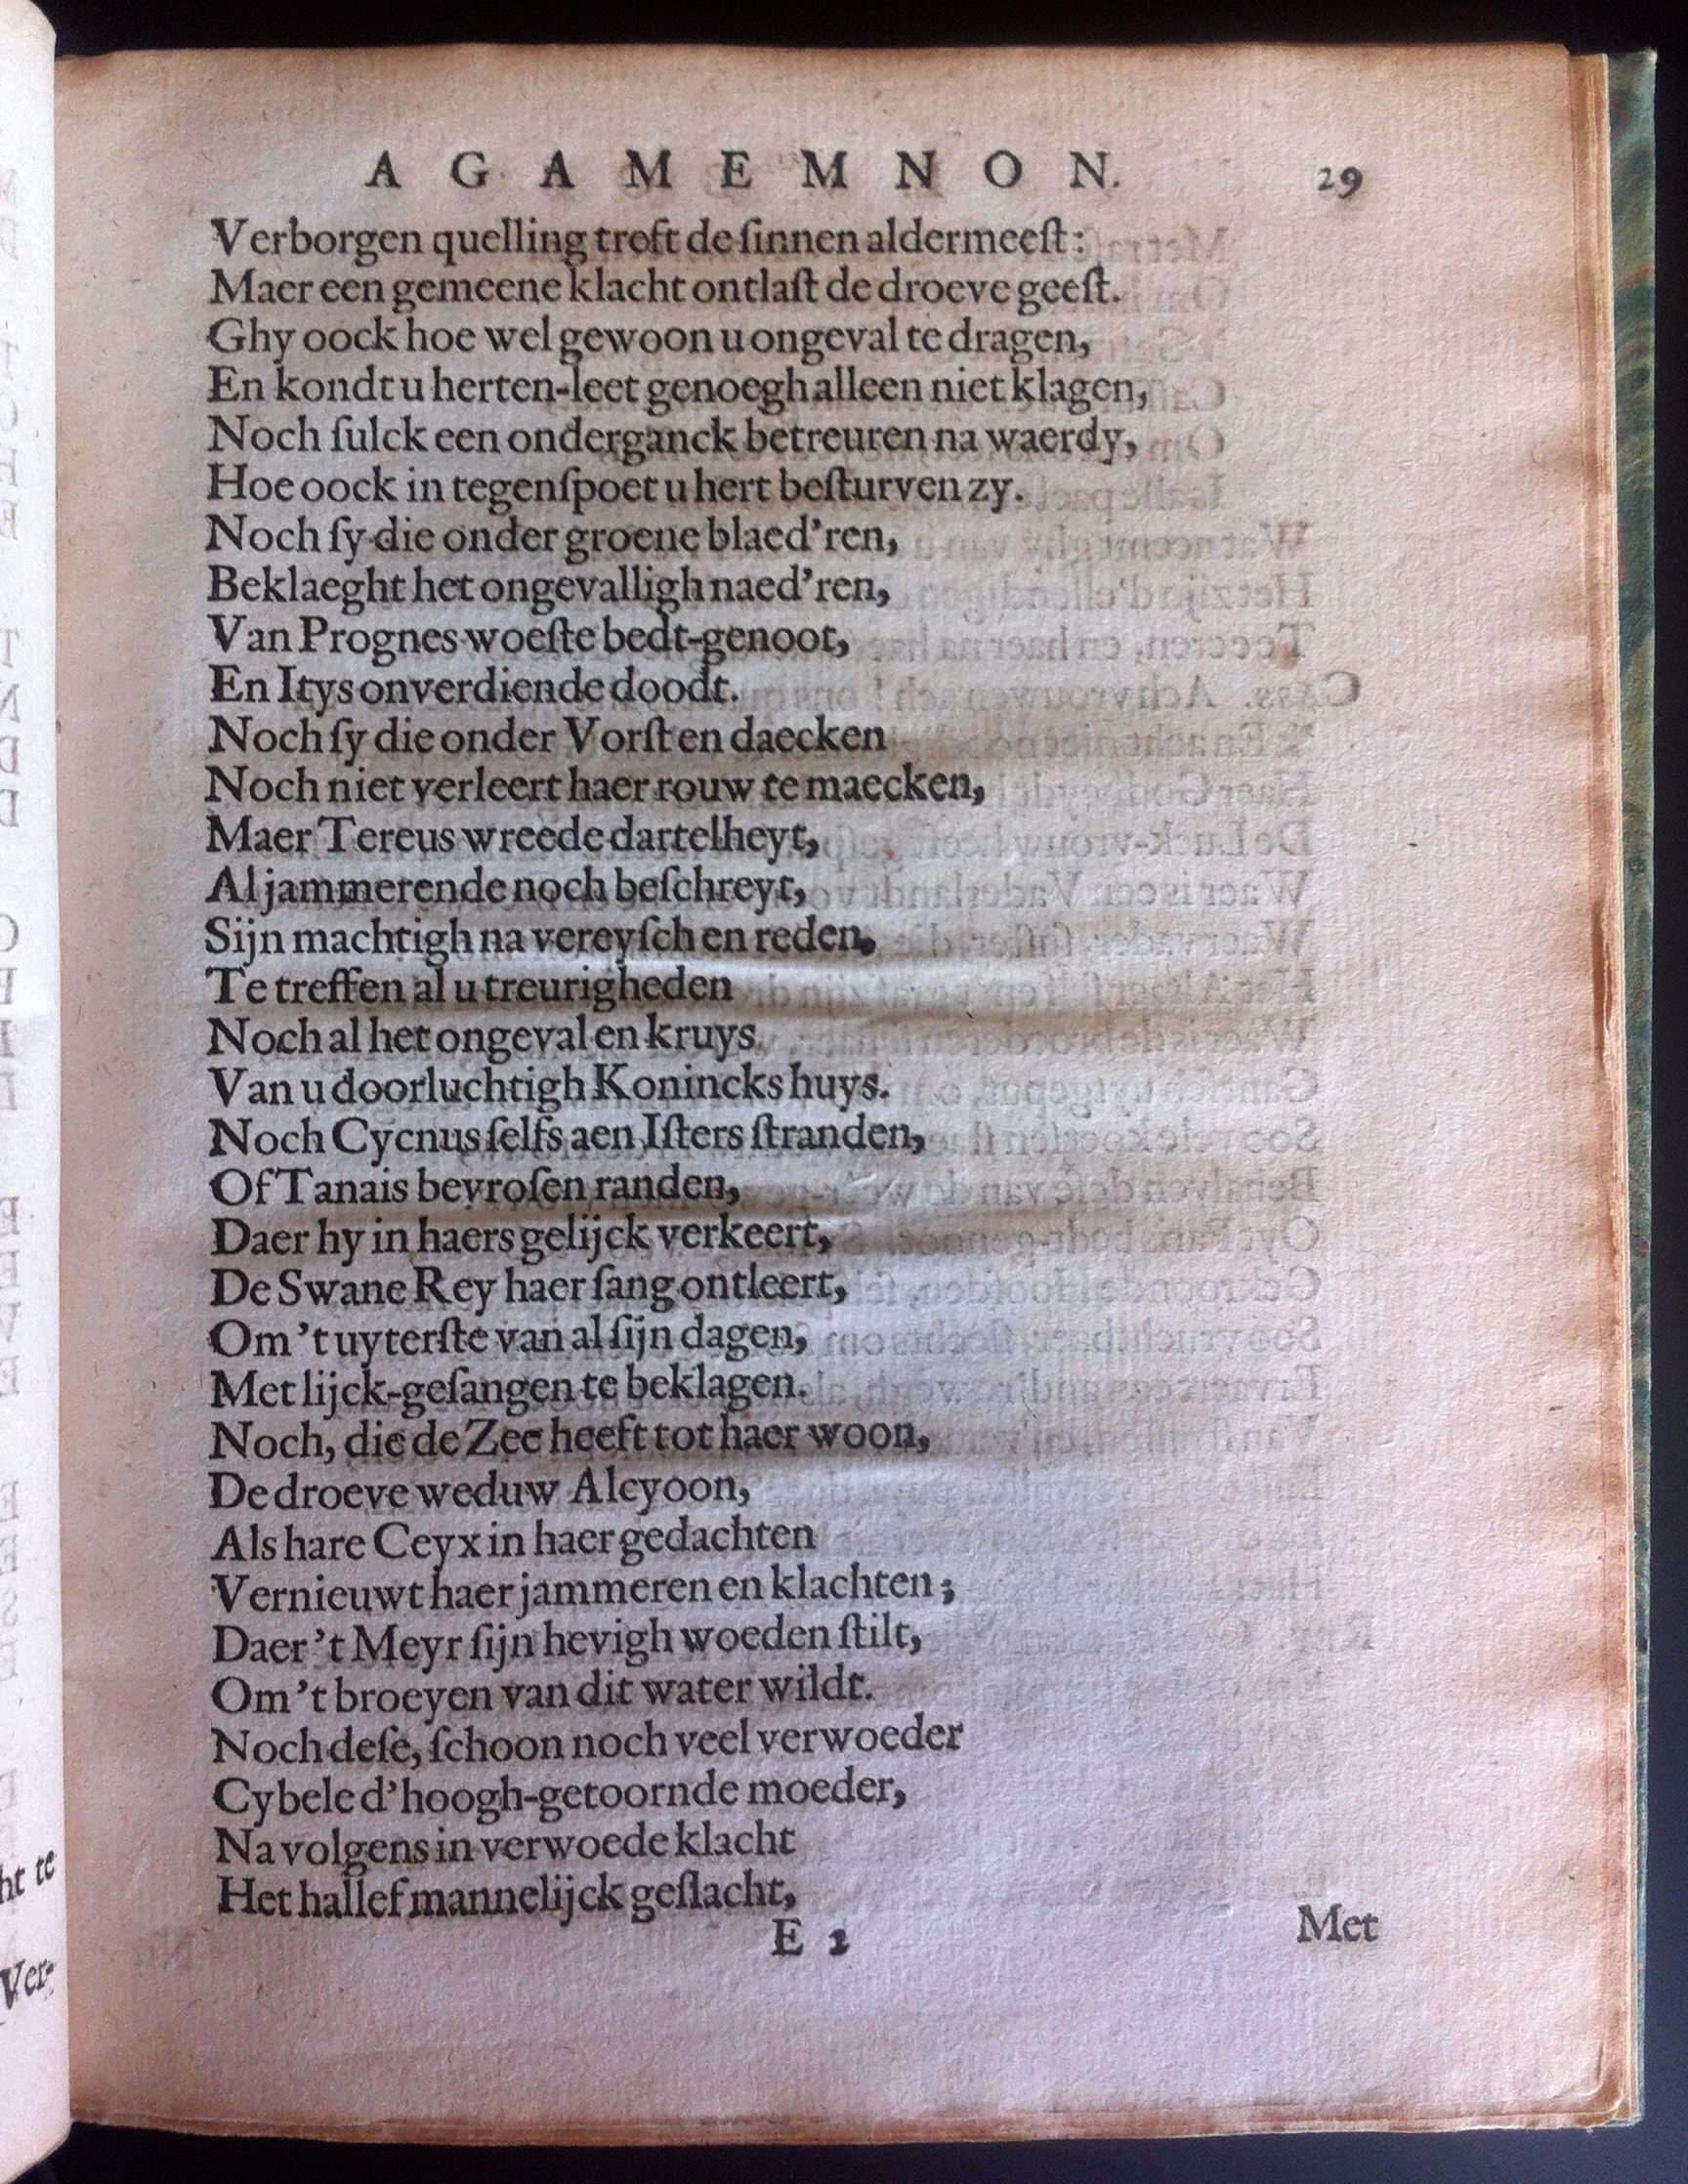 A G A M E M N O N. 29
Verborgen quelling treft de ſinnen aldermeeſt:
Maer een gemeene klacht ontlaſt de droeve geeſt.
Ghy oock hoe wel gewoon u ongeval te dragen,
En kondt u herten-leet genoegh alleen niet klagen,
Noch ſulck een onderganck betreuren na waerdy,
Hoe oock in tegenſpoet u hert beſturven zy.
Noch ſy die onder groene blaed'ren,
Beklaeght het ongevalligh naed'ren,
Van Prognes woeſte bedt-genoot,
En Itys onverdiende doodt.
Noch ſy die onder Vorſten daecken
Noch niet verleert haer rouw te maecken,
Maer Tereus wreede dartelheyt,
Al jammerende noch beſchreyt,
Sijn machtigh na vereyſch en reden.
Te treffen al u treurigheden
Noch al het ongeval en kruys.
Van u doorluchtigh Konincks huys.
Noch Cycnus ſelfs aen Iſters ſtranden,
Of Tanais bevroſen randen,
Daer hy in haers gelijck verkeert,
De Swane Rey haer ſang ontleert,
Om 't uyterſte van al ſijn dagen,
Met lijck-geſangen te beklagen.
Noch, die de Zee heeft tot haer woon,
De droeve weduw Alcyoon,
Als hare Ceyx in haer gedachten
Vernieuwt haer jammeren en klachten;
Daer 't Meyr ſijn hevigh woeden ſtilt,
Om 't broeyen van dit water wildt.
Noch deſe, ſchoon noch veel verwoeder
Cybele d'hoogh-getoornde moeder,
Na volgens in verwoede klacht
Het hallef mannelijck geſlacht,
E 2 Met